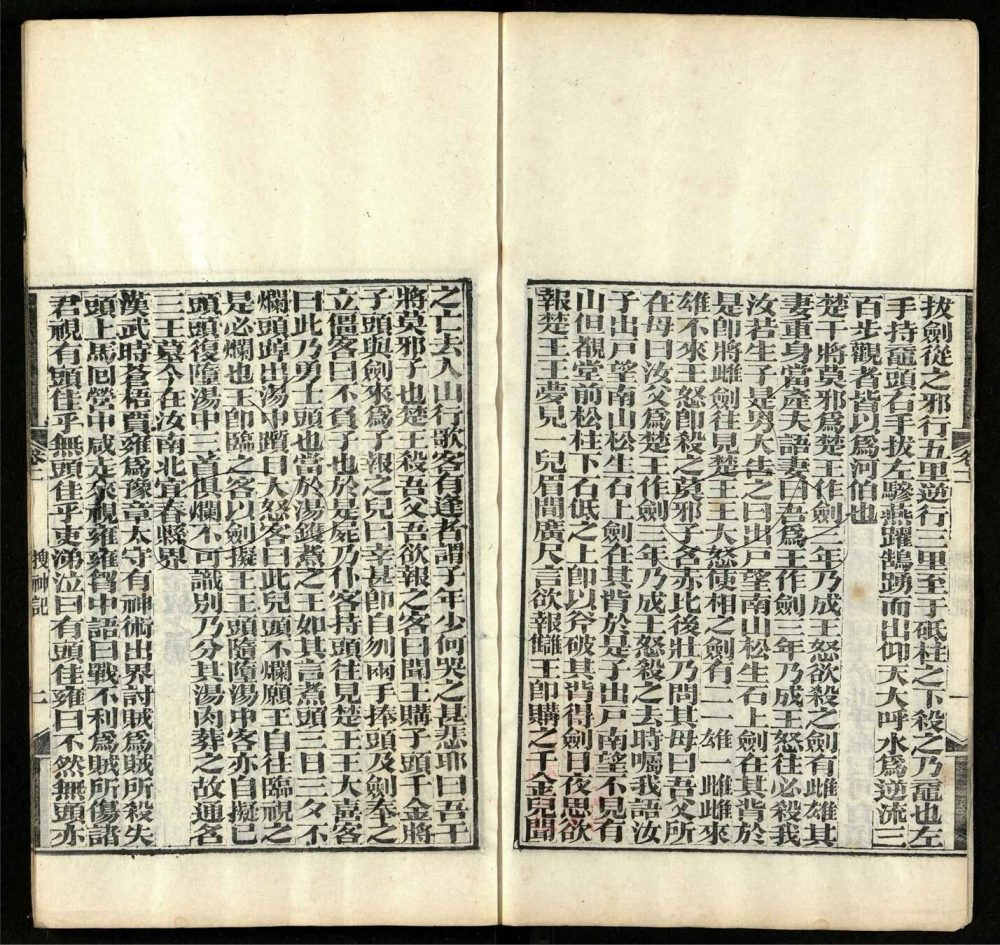 拔劍從之邪行五里逆行三里至于砥柱之下殺之乃黿也左
手持黿頭右手拔左驂燕躍鵠踴而出仰天大呼水爲逆流三
百步觀者皆以爲河伯也
楚干將莫邪爲楚王作劍三年乃成王怒欲殺之劍有雌雄其
妻重身當產夫語妻曰吾爲王作劍三年乃成王怒往必殺我
汝若生子是男大告之曰出戶望南山松生石上劍在其背於
是卽將雌劍往見楚王王大怒使相之劍有二一雄一雌雌來
雄不來王怒卽殺之莫邪子名赤比後壯乃問其母曰吾父所
在母曰汝父爲楚王作劍三年乃成王怒殺之去時囑我語汝
子出戶望南山松生石上劍在其背於是子出戶南望不見有
山但覩堂前松柱下石低之上卽以斧破其背得劍日夜思欲
報楚王王夢見一兒眉間廣尺言欲報讎王卽購之千金兒聞
之亡去入山行歌客有逢者謂子年少何哭之甚悲耶曰吾干
將莫邪子也楚王殺吾父吾欲報之客曰聞王購子頭千金將
子頭與劍來爲子報之兒曰幸甚卽自刎兩手捧頭及劍奉之
立僵客曰不負子也於是屍乃仆客持頭往見楚王王大喜客
曰此乃勇士頭也當於湯鑊煮之王如其言煮頭三日三夕不
爛頭踔出湯中躓目大怒客曰此兒頭不爛願王自往臨視之
是必爛也王卽臨之客以劍擬王王頭隨墮湯中客亦自擬己
頭頭復墮湯中三首俱爛不可識別乃分其湯肉葬之故通名
三王墓今在汝南北宜春縣界
漢武時蒼梧賈雍爲豫章太守有神術出界討賊爲賊所殺失
頭上馬回營中咸走來視雍雍胷中語曰戰不利爲賊所傷諸
君視有頭佳乎無頭佳乎吏涕泣曰有頭佳雍曰不然無頭亦
搜神記
二